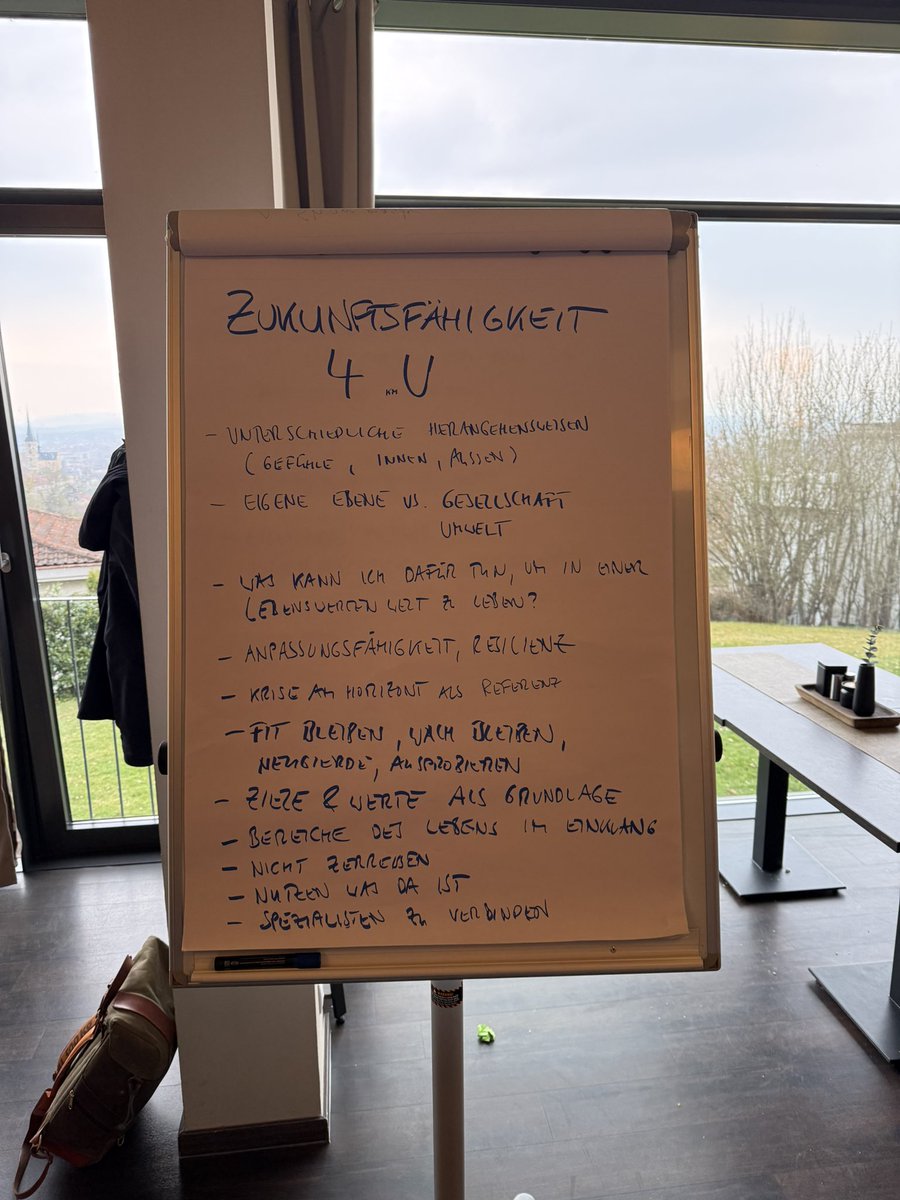 ZUKUNFTSFÄHIGKEIT
4 KM U
- UNTERSCHIEDLICHE HERANGEHENSWEISEN
(GEFÜHLE, INNEN, AUSSEN)
- EIGENE EBENE VS. GESELLSCHAFT
UMWELT
- WAS KANN ICH DAFÜR TUN, UM IN EINER
LEBENSWERTEN WELT ZU LEBEN?
- ANPASSUNGSFÄHIGKEIT, RESILIENZ
- KRISE AM HORIZONT ALS REFERENZ
- FIT BLEIBEN, WACH BLEIBEN,
NEUGIERDE, AUSPROBIEREN
- ZIELE & WERTE ALS GRUNDLAGE
- BEREICHE DES LEBENS IM EINKLANG
- NICHT ZERREIBEN
- NUTZEN WAS DA IST
- SPEZIALISTEN ZU VERBINDEN